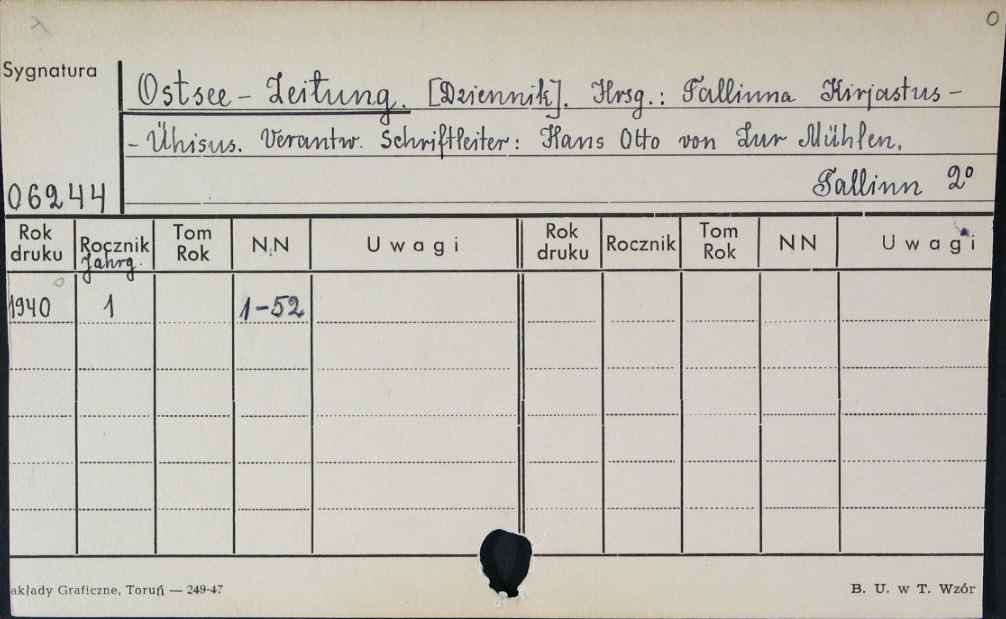 O
Sygnatura
Ostsee-Zeitung. [Dziennik]. Hrsg.: Tallinna Kirjastus-
-Ühisus. Verantw. Schriftleiter: Hans Otto von Zur Mühlen,
Tallinn 2°
06244
Rok druku Rocznik Jahrg. Tom Rok N.N Uwagi Rok druku Rocznik Tom Rok NN Uwagi
1940 1 1-52
akłady Graficzne, Toruń — 249-47 B. U. w T. Wzór